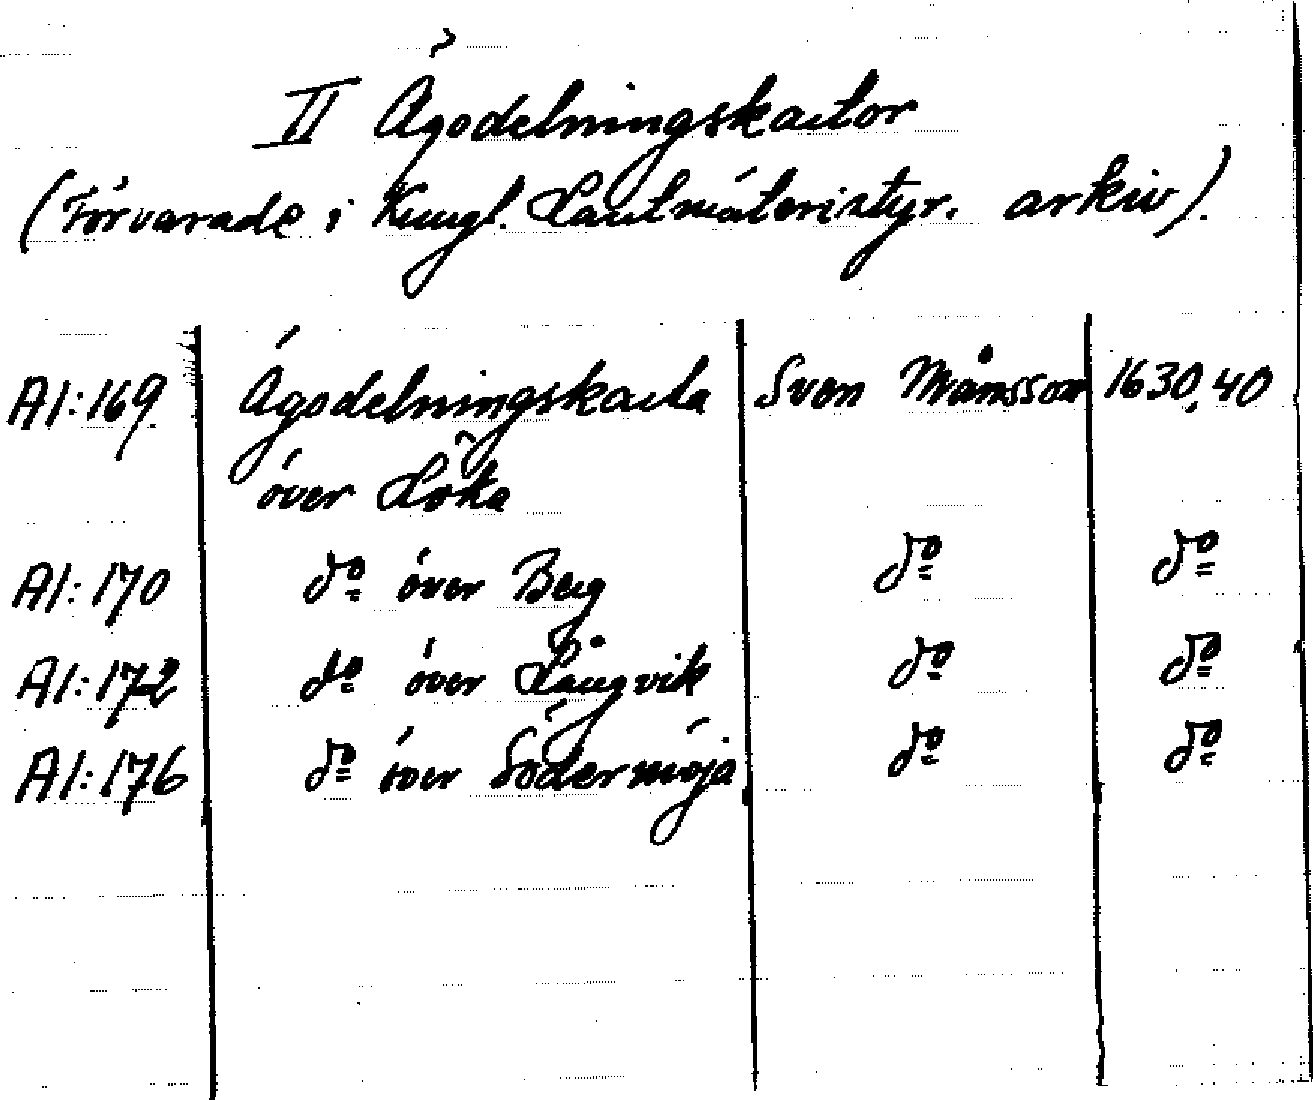 II Ägodelningskartor
(Förvarade i Kungl. Lantmäteristyr. arkiv).
A1:169. Ägodelningskarta Sven Månsson 1630,40
över Löka
A1:170 dº över Berg dº dº
A1:172 dº över Långvik dº dº
A1:176 dº över Södermöja dº dº